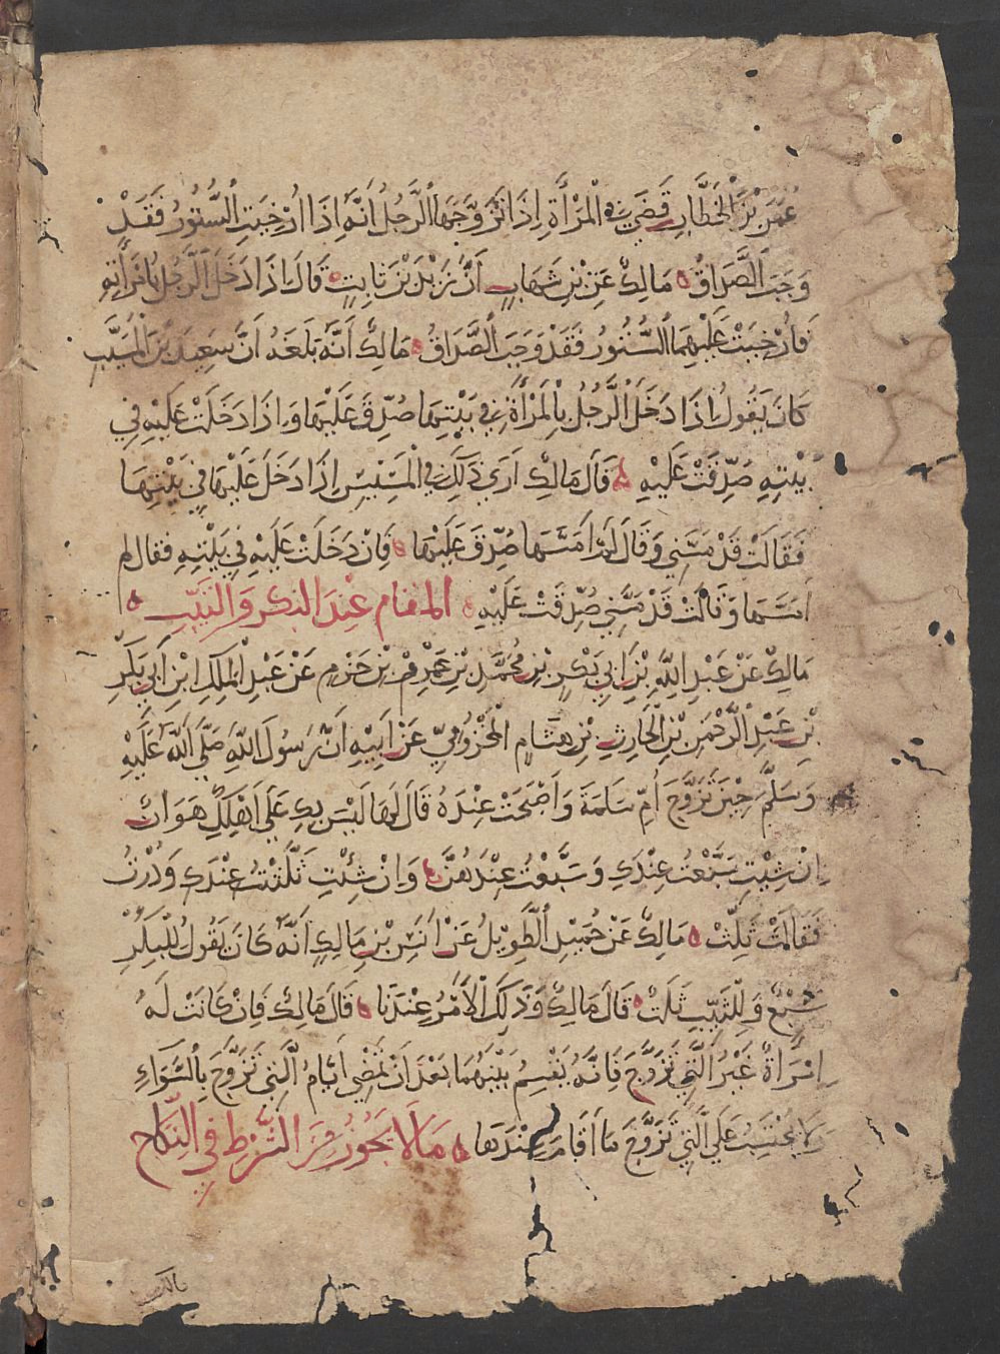 عُمَرَ بْنَ الْخَطَّابِ قَضَى في الْمَرْأَةِ إِذَا تَزَوَّجَهَا الرَّجُلُ أَنَّهُ إِذَا أُرْخِيَتِ السُّتُورُ فَقَدْ
وَجَبَ الصَّدَاقُ ه مَالِكٌ عَنِ ابْنِ شِهَابٍ أَنَّ زَيْدَ بْنَ ثَابِتٍ ه قَالَ إِذَا دَخَلَ الرَّجُلُ بِامْرَأَتِهِ
فَأُرْخِيَتْ عَلَيْهِمَا السُّتُورُ فَقَدْ وَجَبَ الصَّدَاقُ ه مَالِكٌ أَنَّهُ بَلَغَهُ أَنَّ سَعِيدَ بْنَ الْمُسَيَّبِ
كَانَ يَقُولُ إِذَا دَخَلَ الرَّجُلُ بِالْمَرْأَةِ فِي بَيْتِهَا صُدِّقَ عَلَيْهَا وَإِذَا دَخَلَتْ عَلَيْهِ فِي
بَيْتِهِ صُدِّقَتْ عَلَيْهِ ه قَالَ مَالِكٌ أَرَى ذَلِكَ فِي الْمَسِيسِ إِذَا دَخَلَ عَلَيْهَا فِي بَيْتِهَا
فَقَالَتْ قَدْ مَسَّنِي وَقَالَ لَمْ أَمَسَّهَا صُدِّقَ عَلَيْهَا ه فَإِنْ دَخَلَتْ عَلَيْهِ فِي بَيْتِهِ فَقَالَ لم
أَمَسَّهَا وَقَالَتْ قَدْ مَسَّنِي صُدِّقَتْ عَلَيْهِ ه المقام عِنْدَ البكر وَالثَّيِّبِ ه
مَالِكٌ عَنْ عَبْدِ اللَّهِ بْنِ أَبِي بَكْرِ بْنِ مُحَمَّدِ بْنِ عَمْرِو بْنِ حَزْمٍ عَنْ عَبْدِ الْمَلِكِ ابْنِ أَبِي بَكْرِ
بْنِ عَبْدِ الرَّحْمَنِ بْنِ الْحَارِثِ بْنِ هِشَامٍ الْمَخْزُومِيِّ عَنْ أَبِيهِ أَنَّ رَسُولَ اللَّهِ صَلَّى اللَّهُ عَلَيْهِ
وَسَلَّمَ حِينَ تَزَوَّجَ أُمَّ سَلَمَةَ وَأَصْبَحَتْ عِنْدَهُ قَالَ لَهَا لَيْسَ بِكِ عَلَى أَهْلِكِ هَوَانٌ
إِنْ شِئْتِ سَبَّعْتُ عِنْدَكِ وَسَبَّعْتُ عِنْدَهُنَّ ه وَإِنْ شِئْتِ ثَلَّثْتُ عِنْدَكِ وَدُرْتُ
فَقَالَتْ ثَلِّثْ ه مَالِكٌ عَنْ حُمَيْدٍ الطَّوِيلِ عَنْ أَنَسِ بْنِ مَالِكٍ أَنَّهُ كَانَ يَقُولُ لِلْبِكْرِ
سَبْعٌ وَلِلثَّيِّبِ ثَلَثٌ ه قَالَ مَالِكٌ وَذَلِكَ الْأَمْرُ عِنْدَنَا ه قَالَ مَالِكٌ فَإِنْ كَانَتْ لَهُ
امْرَأَةٌ غَيْرُ الَّتِي تَزَوَّجَ فَإِنَّهُ يَقْسِمُ بَيْنَهُمَا بَعْدَ أَنْ تَمْضِيَ أَيَّامُ الَّتِي تَزَوَّجَ بِالسَّوَاءِ
وَلَا يَحْتَسِبُ عَلَى الَّتِي تَزَوَّجَ مَا أَقَامَ عِنْدَهَا ه مَا لَا يَجُوزُ مِنَ الشَّرْطِ فِي النِّكَاحِ